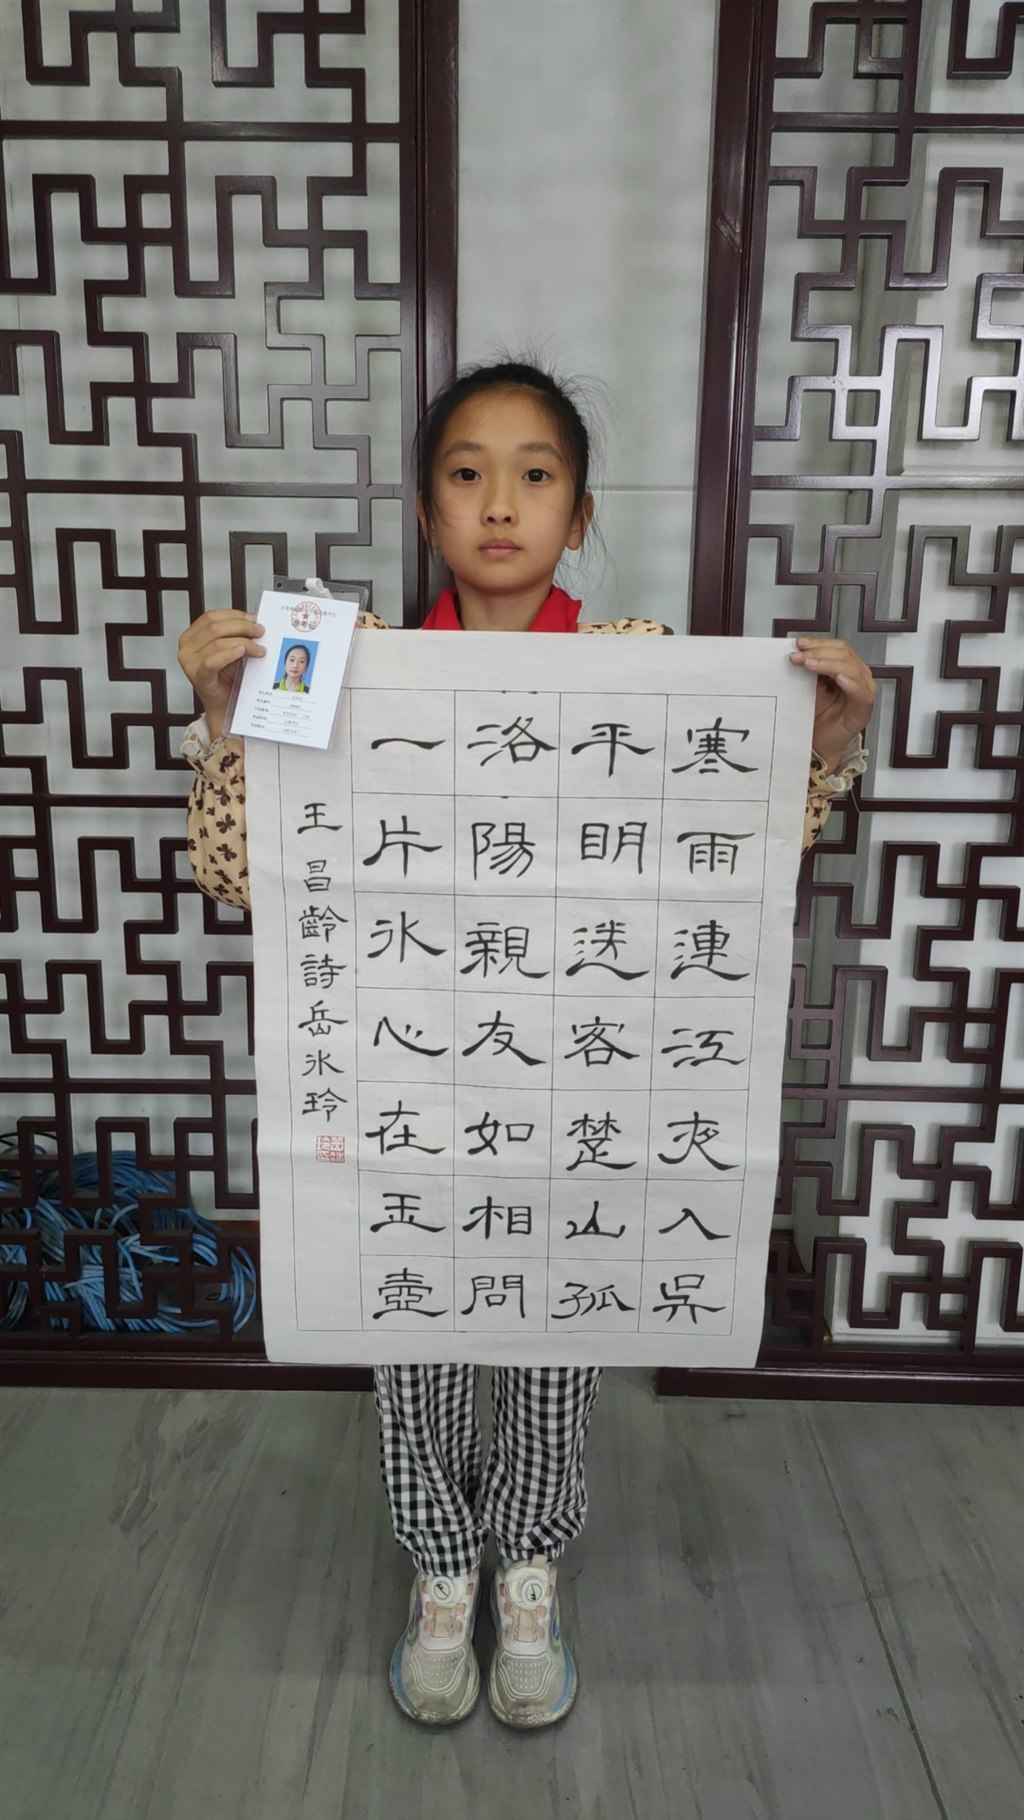 寒雨連江夾入吳
平明送客楚山孤
洛陽親友如相問
一片氷心在玉壺
王昌齡詩岳氷玲
准考证